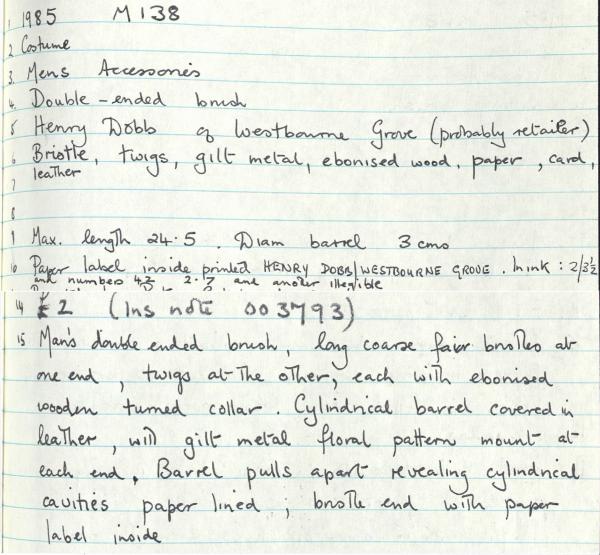 1 1985 M138
2 Costume
3. Mens Accessories
4. Double-ended brush
5 Henry Dobb of Westbourne Grove (probably retailer)
6 Bristle, twigs, gilt metal, ebonised wood, paper, card,
7 leather
8
9 Max. length 24.5. Diam barrel 3 cms
10 Paper label inside printed HENRY DOBB/WESTBOURNE GROVE. In ink: 2/3½
and numbers and another illegible
14 £2 (Ins note 003793)
15 Man's double ended brush, long coarse fair bristles at
one end, twigs at the other, each with ebonised
wooden turned collar. Cylindrical barrel covered in
leather, with gilt metal floral pattern mount at
each end. Barrel pulls apart revealing cylindrical
cavities paper lined; bristle end with paper
label inside